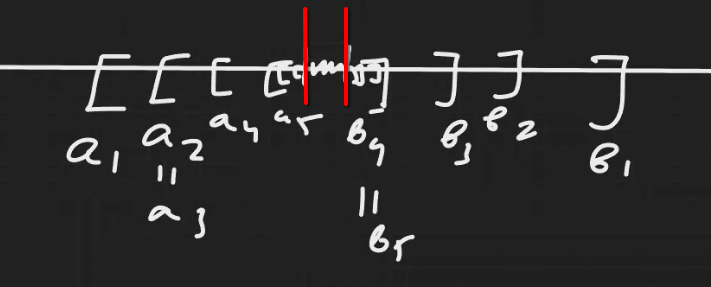 [ [ [ [ [ [ ] ] ] ] ] ]
a₁ a₂ a₄ a₅ b₄ b₃ b₂ b₁
= =
a₃ b₅